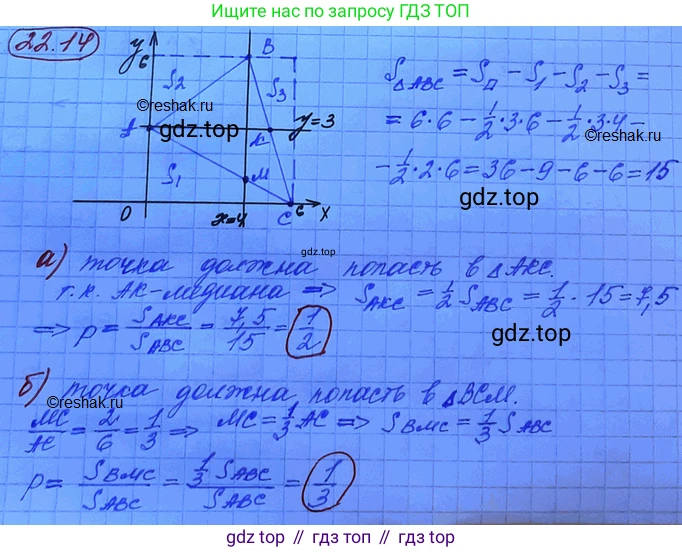 Ищите нас по запросу ГДЗ ТОП
22.14
y
6
B
S2
S3
©reshak.ru
gdz.top
A
K
y=3
S1
M
0
x=4
C
6
x
S△ABC = S□ - S1 - S2 - S3 =
= 6·6 - 1/2·3·6 - 1/2·3·4 -
©reshak.ru
- 1/2·2·6 = 36 - 9 - 6 - 6 = 15
gdz.top
22.14
а) точка должна попасть в △AKC.
т.к. AK-медиана ⇒ SAKC = 1/2 SABC = 1/2 · 15 = 7,5
⇒ p = SAKC/SABC = 7,5/15 = 1/2
gdz.top
б) точка должна попасть в △BCM.
©reshak.ru
MC/AC = 2/6 = 1/3 ⇒ MC = 1/3 AC ⇒ SBMC = 1/3 SABC
p = SBMC/SABC = 1/3 SABC/SABC = 1/3
gdz.top // gdz.top // gdz.top